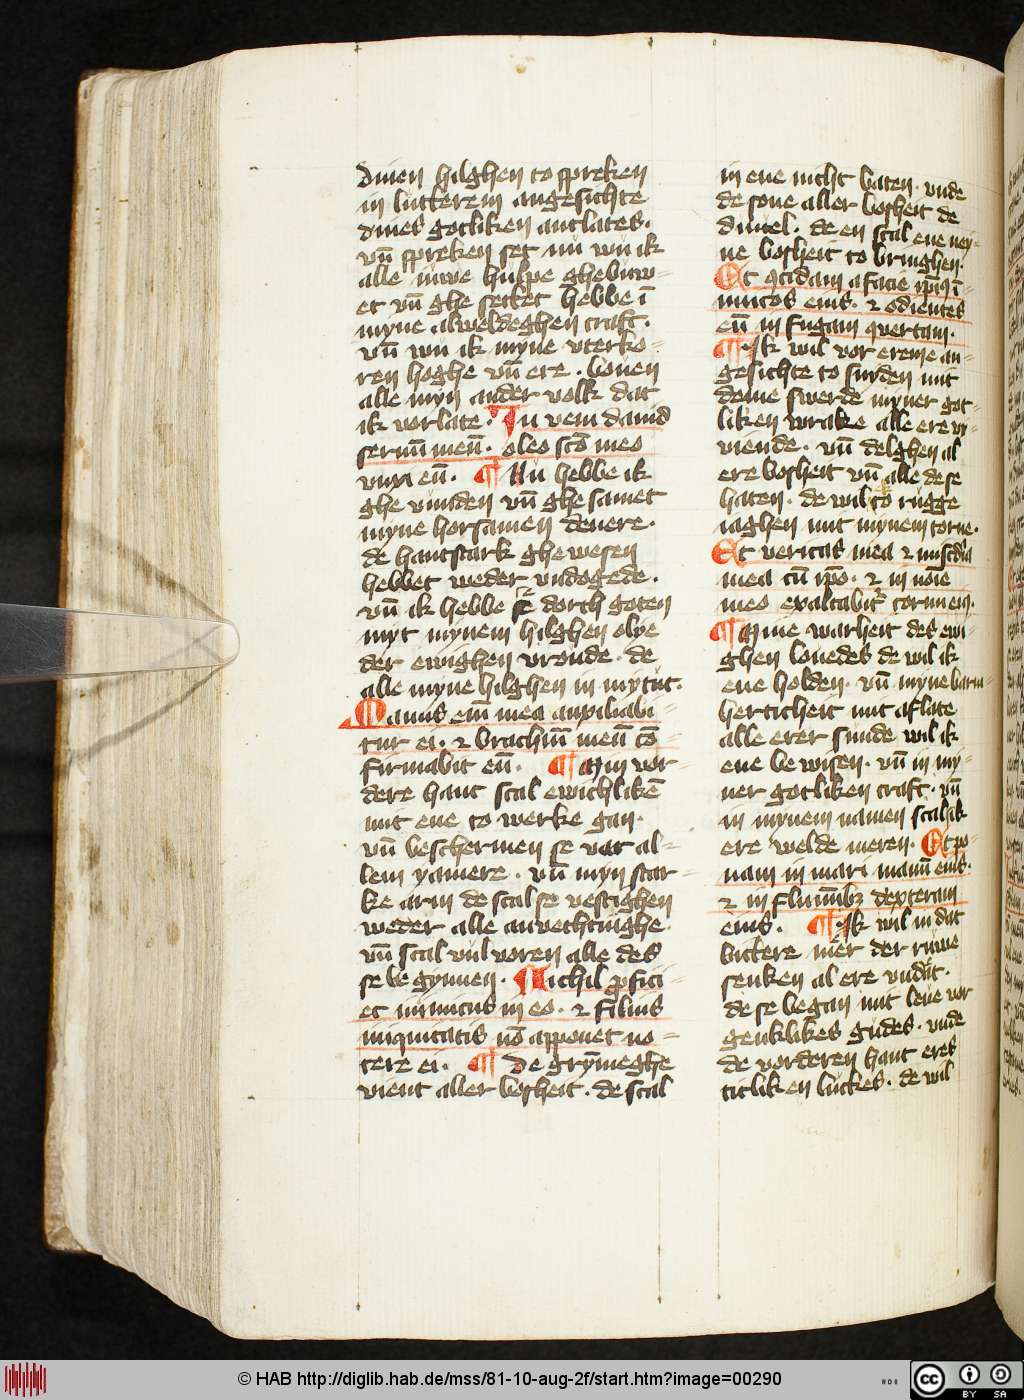 dinen hilghen to spreken
in lutterem angesichte
dines gotliken antlates.
vn̄ spreken set nu wu ik
alle iuwe hulpe ghebuw-
et vn̄ ghe settet hebbe ī
myne alweldeghen craft.
vn̄ wu ik myne vterko-
ren hoghe vn̄ ere. bouen
alle myn ander volk dat
ik vorlate. In veni dauid
seruū meū. oleo scō meo
vnxi eū. ¶ Nu hebbe ik
ghe vunden vn̄ ghe samet
myne horsamen denere.
de hantstark ghe wesen
hebbet weder vndogede.
vn̄ ik hebbe se dorch goten
myt mynem hilghen olye
der ewighen vroude. de
alle myne hilghen in mytut.
Manus eīm mea auxiliabi-
tur ei. ⁊ brachiū meū cō-
firmabit eū. ¶ Min vor-
dere hant scal ewichlikē
mit ene to werke gan.
vn̄ beschermen se vor al-
lem yamere. vn̄ myn star-
ke arm de scal se vestighen
weder alle anvechtinghe.
vn̄ scal vul voren alle des
se be gynnen. Nichil ꝓfici-
et inimicus in eo. ⁊ filius
iniquitatis nō apponet no-
cere ei. ¶ De grymeghe
vient aller bosheit. de scal
in ene nicht baten. vnde
de sone aller bosheit de
duuel. de en scal ene ney-
ne bosheit to bringhen.
Et ꝯcidam a facie ip̄iꝰ ī-
micos eius. ⁊ odientes
eū in fugam ꝯuertam.
¶ Ik wil vor ereme an-
gesichte to snyden mit
deme swerde myner got-
liken wrake alle ere vy-
viende. vn̄ delghen al
ere bosheit vn̄ alle de se
haten. de wil ik to rugge
iaghen mit mynem torne.
Et veritas mea ⁊ mīscd̄ia
mea cū ip̄o. ⁊ in noīe
meo exaltabit᷑ cornu eiꝰ.
¶ Mine warheit des ewi-
ghen louedes de wil ik
ene holden. vn̄ myne barm-
herticheit mit aflate
alle erer sunde wil ik
ene be wisen. vn̄ in my-
ner gotliken craft. vn̄
in mynem namen scal ik
ere welde meren. Et po-
nam in mari manū eius.
⁊ in flumībꝫ dexteram
eius. ¶ Ik wil in dat
bittere mer der ruwe
senken al ere vndāt.
de se began mit leue vor
genklikes gudes. vnde
de vorderen hant eres
titliken luckes. de wil
© HAB http://diglib.hab.de/mss/81-10-aug-2f/start.htm?image=00290
HAB
cc BY SA